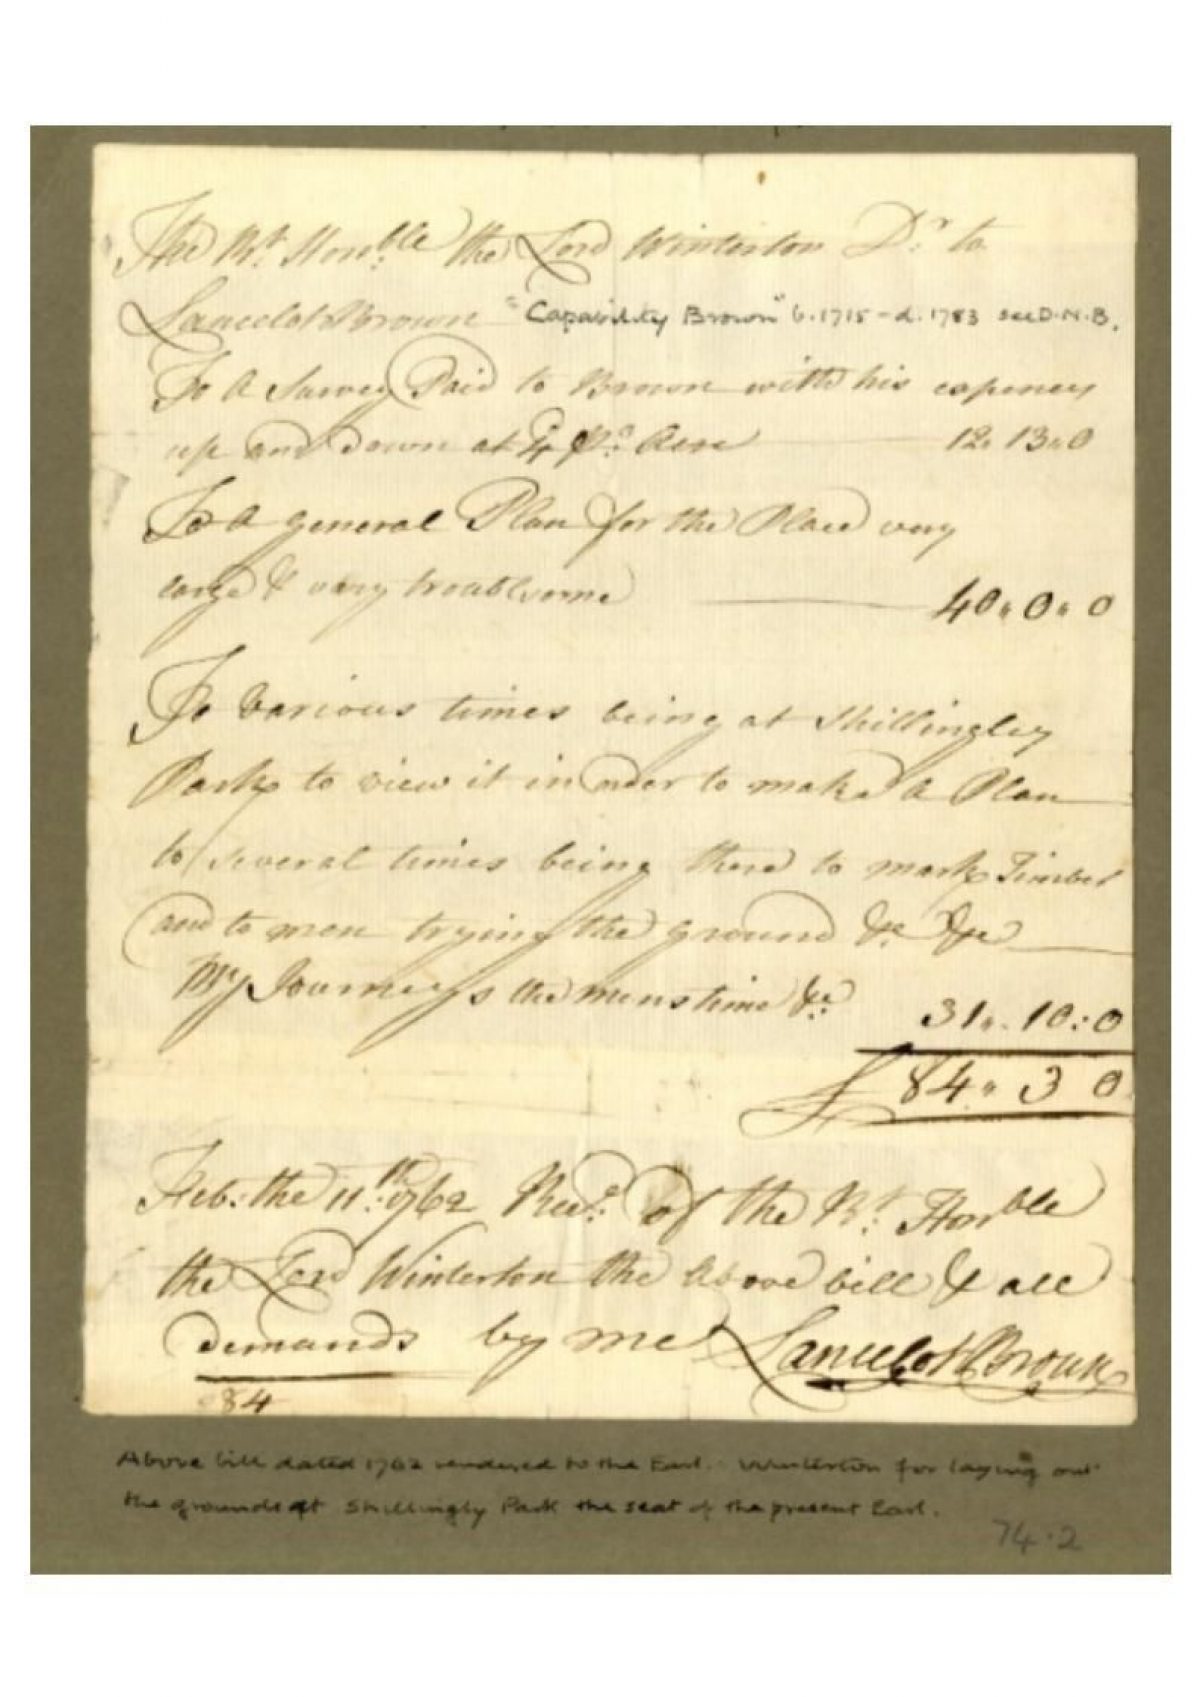 The Rt. Honble the Lord Winterton Dr. to
Lancelot Brown "Capability Brown" b.1715 - d.1783 see D.N.B.
To A Survey Paid to Brown with his expences
up and down at Pr. Acre 12" 13" 0
To A general Plan for the Place very
large & very troublsome 40" 0" 0
To Various times being at Shillingley
Park to view it in order to make A Plan
to several times being there to mark Timber
and to men trying the ground &c &c
My Journeys the mens time &c: 31" 10: 0
£ 84" 3 0
Feb: the 11th: 1762 Recd. of the Rt: Honble
the Lord Winterton the Above bill & all
demands by me Lancelot Brown
84
Above bill dated 1762 rendered to the Earl Winterton for laying out
the grounds at Shillingly Park the seat of the present Earl.
74.2